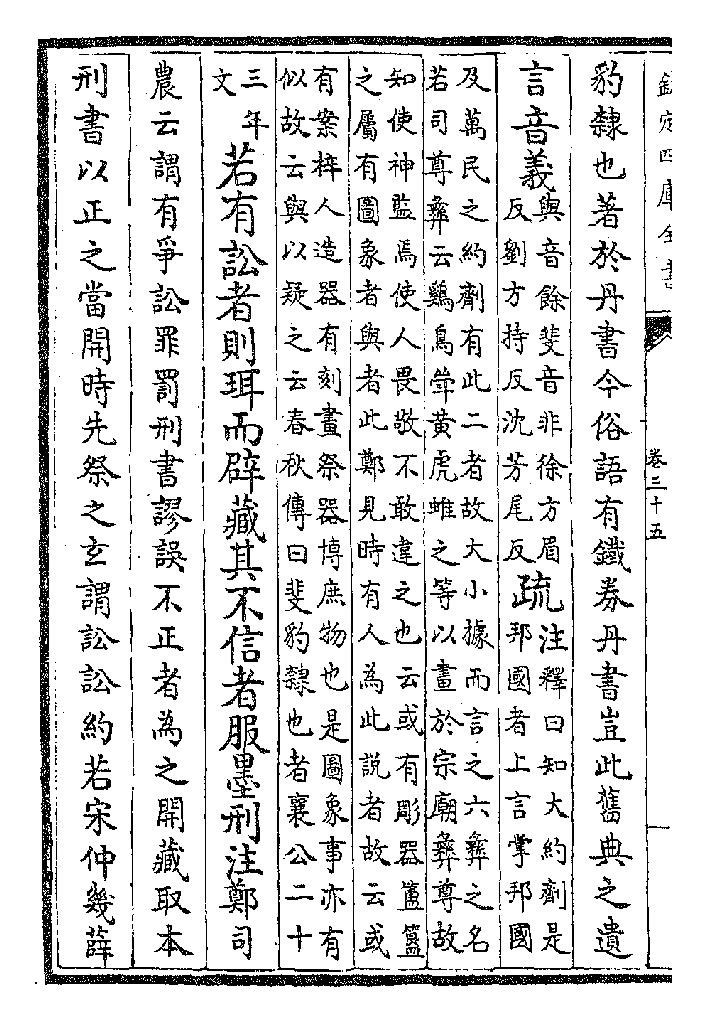 欽定四庫全書
卷二十五
豹隸也著於丹書今俗語有鐵劵丹書豈此舊典之遺
言音義與音餘斐音非徐方眉
反劉方持反沈芳尾反疏注釋曰知大約劑是
邦國者上言掌邦國
及萬民之約劑有此二者故大小據而言之六彝之名
若司尊彝云鷄鳥斝黃虎蜼之等以畫於宗廟彝尊故
知使神監焉使人畏敬不敢違之也云或有彫器簠簋
之屬有圖象者與者此鄭見時有人為此說者故云或
有案梓人造器有刻畫祭器博庶物也是圖象事亦有
似故云與以疑之云春秋傳曰斐豹隸也者襄公二十
三年
文若有訟者則珥而辟藏其不信者服墨刑注鄭司
農云謂有爭訟罪罰刑書謬誤不正者為之開藏取本
刑書以正之當開時先祭之玄謂訟訟約若宋仲幾薛